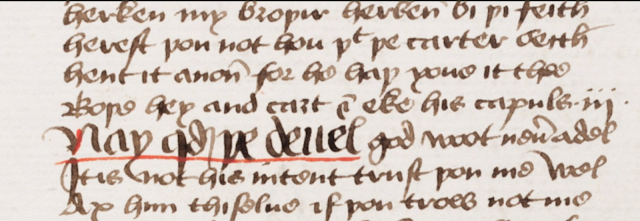 herken my broþir herkeñ bi þi feith
herest þou not hou þᵗ þe carter seith
hent it anoñ for he haþ ȝoue it thee
Boþe hey and cart & eke his capuls .iij.
Nay qd þe deuel god woot neu̅ a del
It is not his intent trust þou me wel
Ax him thiselue if þou trow not me